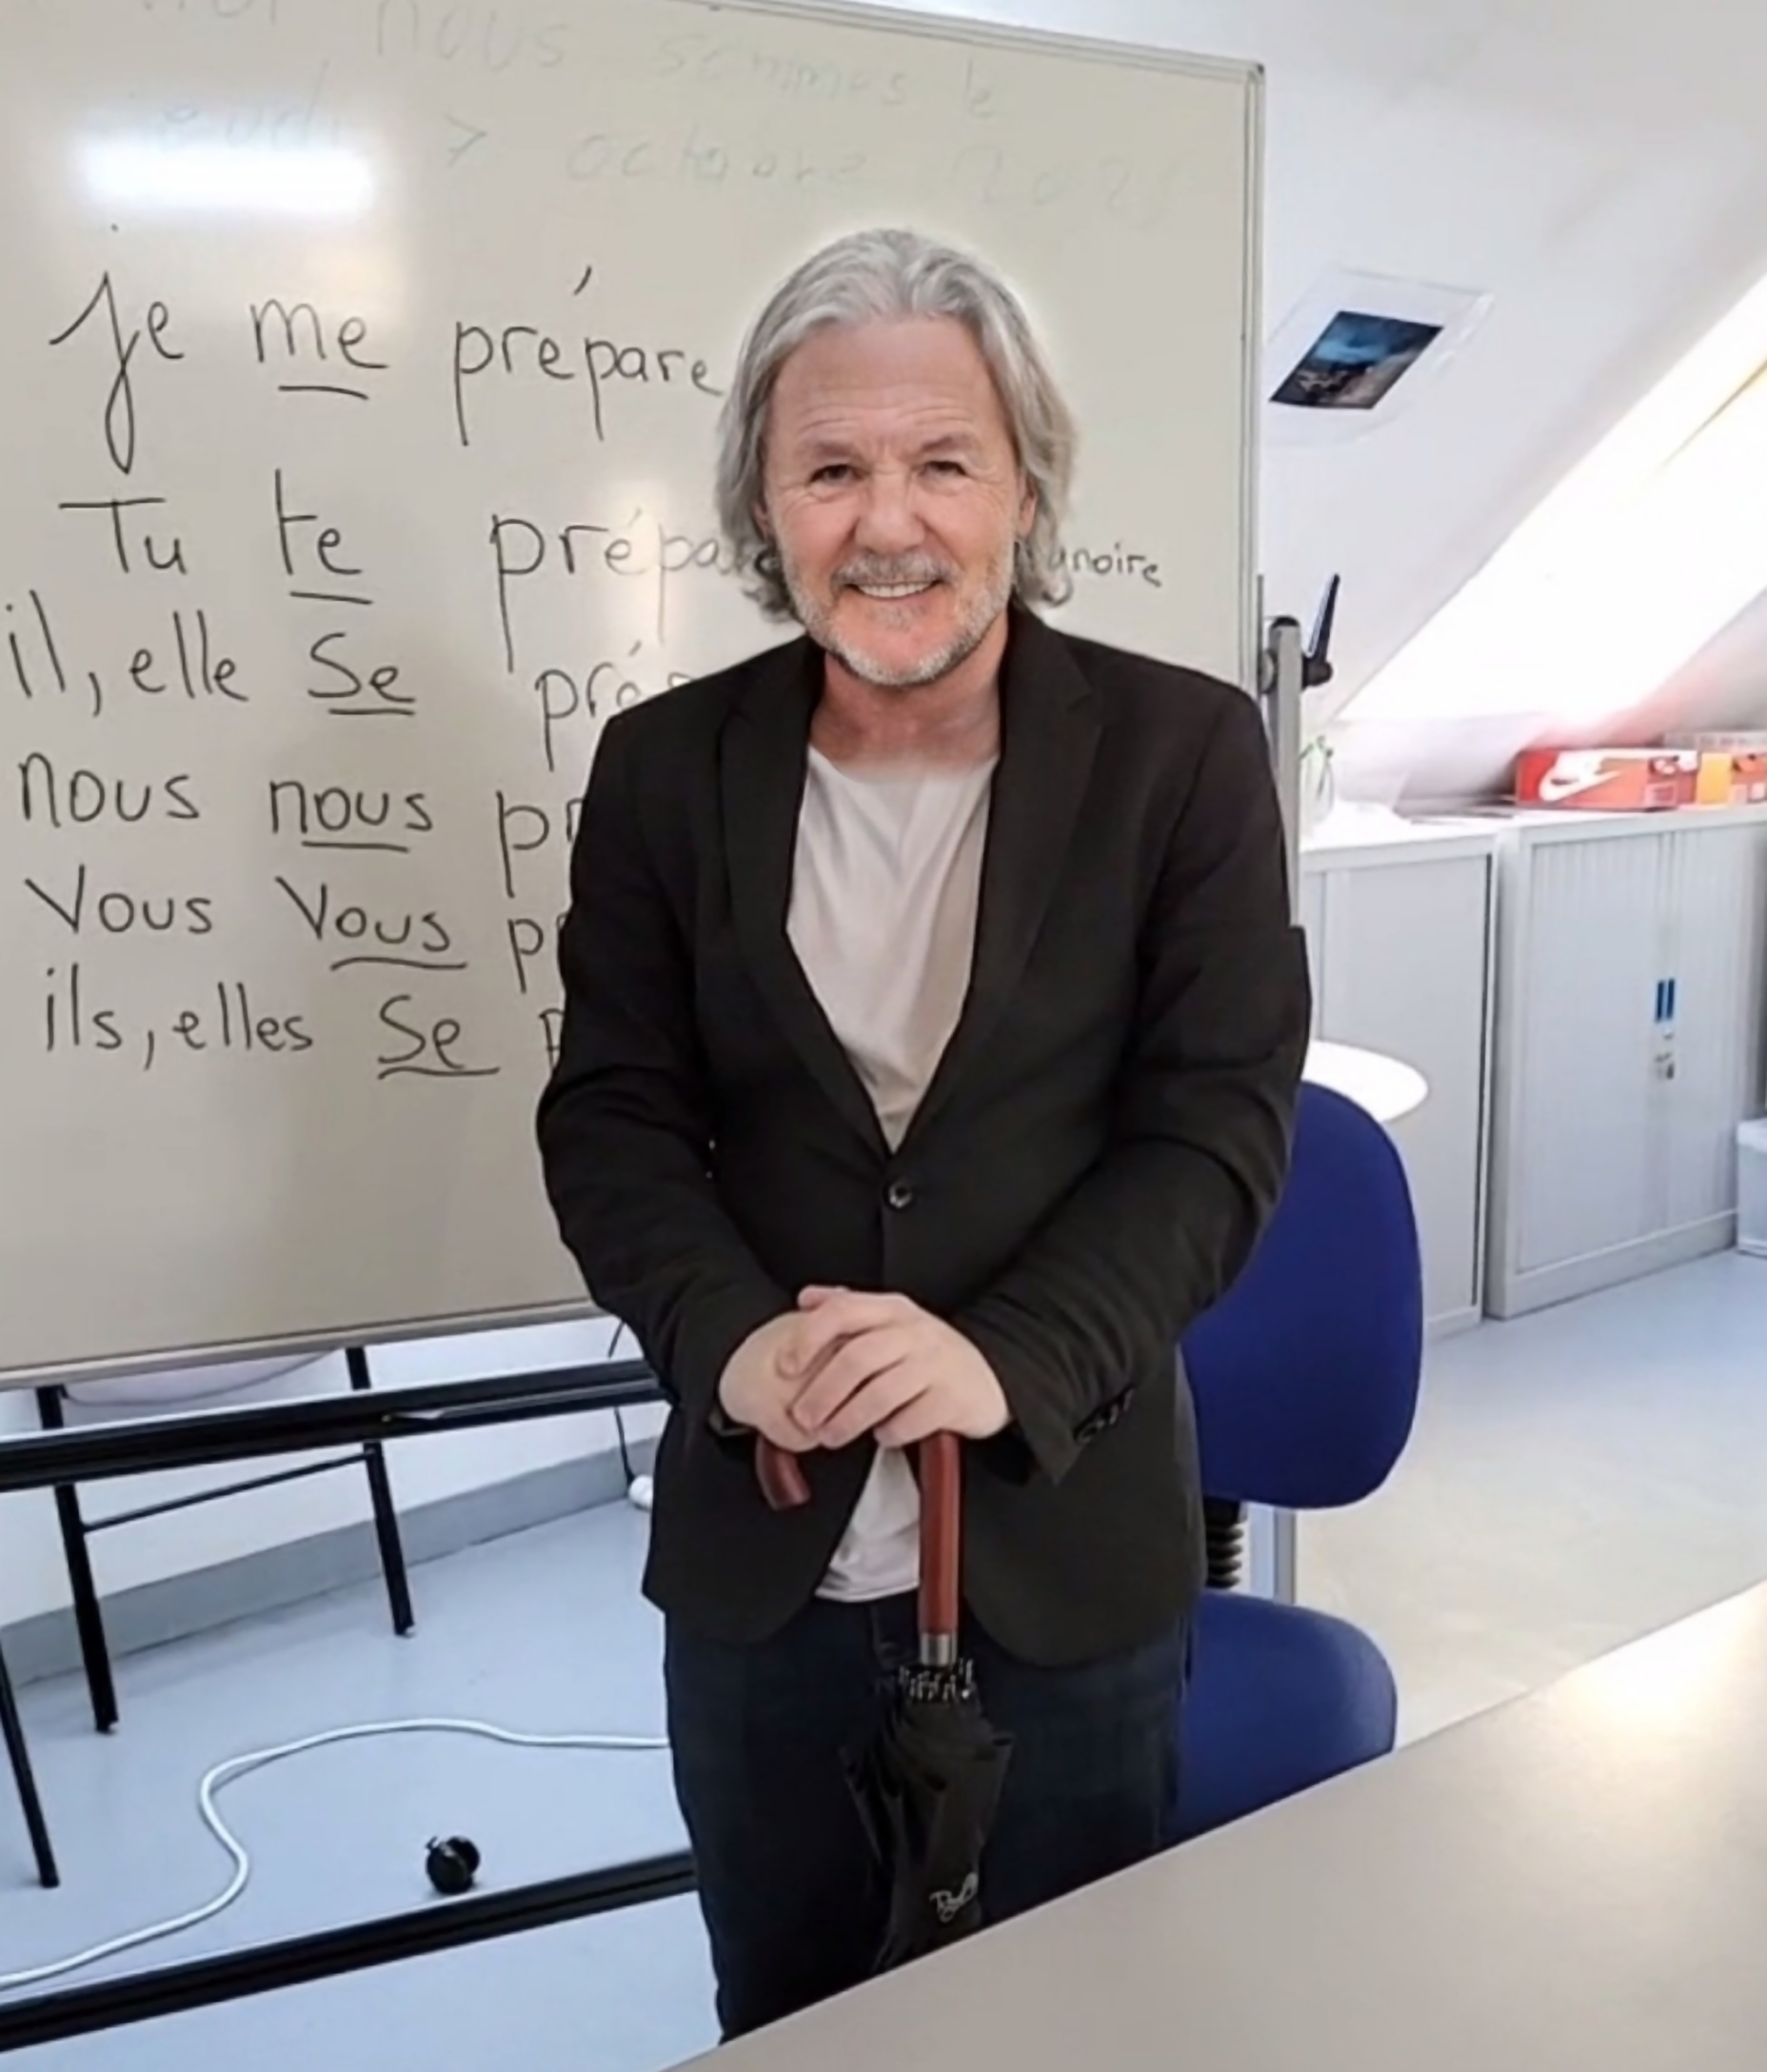 nous sommes le
jeudi 7 octobre 202
je me prépare
Tu te prépa noire
il, elle se pré
nous nous pr
Vous Vous p
ils, elles se p